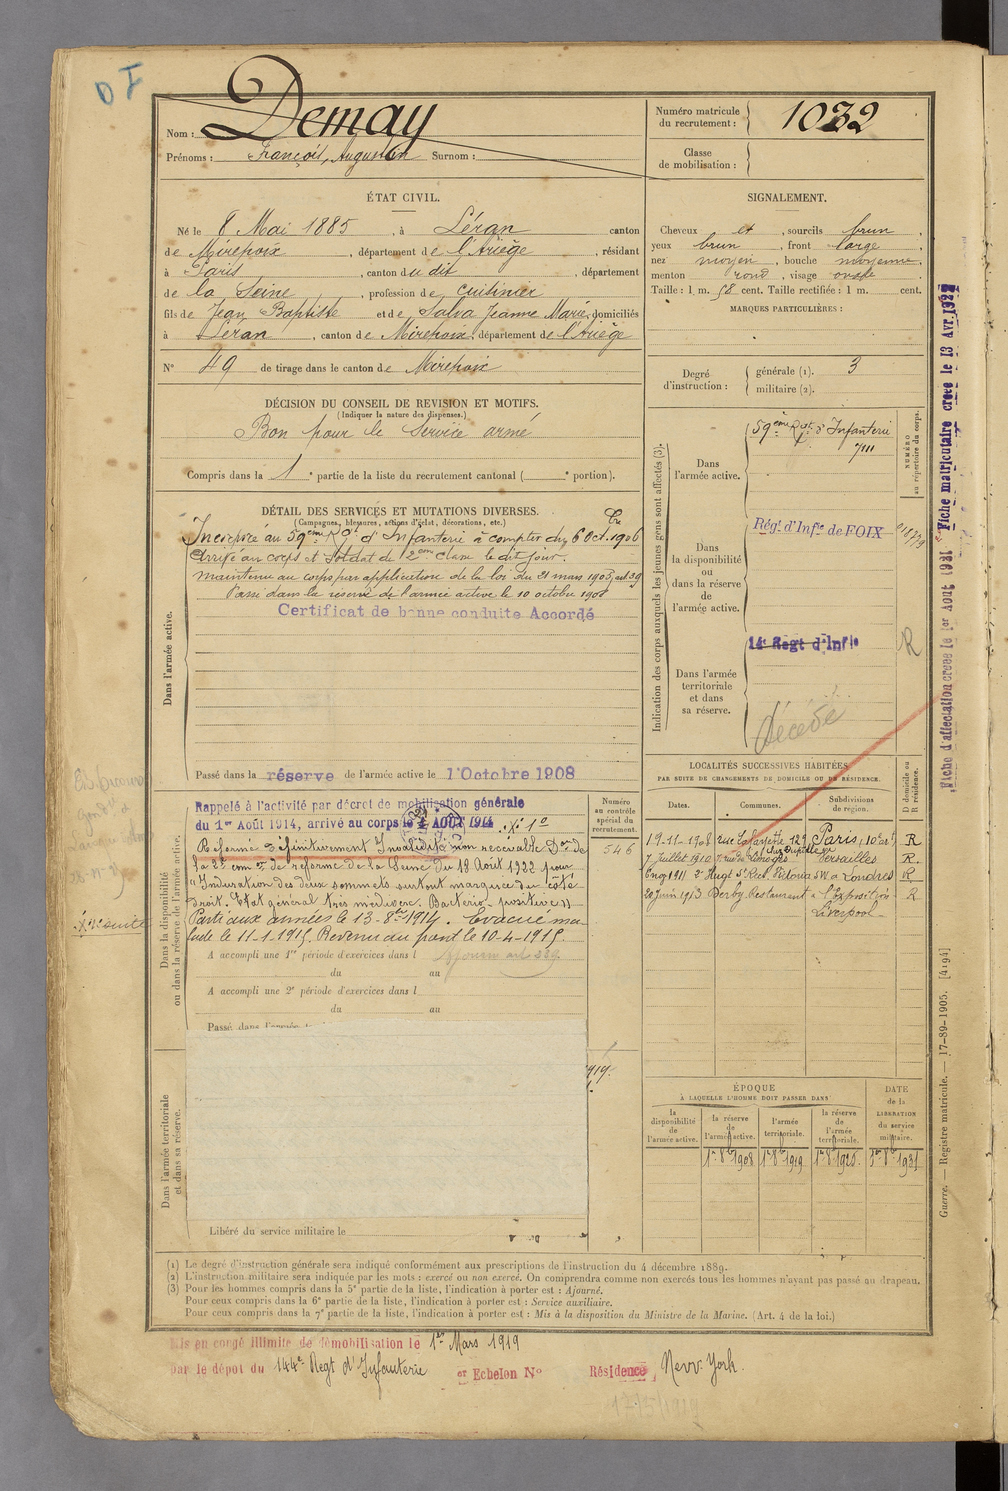 DI
Nom : Demay
Prénoms : François, Augustin Surnom :
Numéro matricule du recrutement : 1032
Classe de mobilisation :
ÉTAT CIVIL.
Né le 8 Mai 1885, à Léran canton
de Mirepoix, département de l'Ariège, résidant
à Paris, canton du dit, département
de la Seine, profession de cuisinier
fils de Jean Baptiste et de Salva Jeanne Marie, domiciliés
à Léran, canton de Mirepoix, département de l'Ariège
N° 49 de tirage dans le canton de Mirepoix
SIGNALEMENT.
Cheveux et, sourcils brun,
yeux brun, front large,
nez moyen, bouche moyenne,
menton rond, visage ovale
Taille : 1 m. 58 cent. Taille rectifiée : 1 m. cent.
MARQUES PARTICULIÈRES :
Degré d'instruction : générale (1). 3
militaire (2).
DÉCISION DU CONSEIL DE REVISION ET MOTIFS.
(Indiquer la nature des dispenses.)
Bon pour le Service armé
Compris dans la 1e partie de la liste du recrutement cantonal ( e portion).
DÉTAIL DES SERVICES ET MUTATIONS DIVERSES.
(Campagnes, blessures, actions d'éclat, décorations, etc.)
Dans l'armée active.
Incorporé au 59ème Rgt d'Infanterie à compter du 6 Oct. 1906
Arrivé au corps et soldat de 2ème classe le dit jour.
Maintenu au corps par application de la loi du 21 mars 1905, art 39
Passé dans la réserve de l'armée active le 10 octobre 1908
Certificat de bonne conduite Accordé
Passé dans la réserve de l'armée active le 1 Octobre 1908
Indication des corps auxquels les jeunes gens sont affectés (3).
NUMÉRO au répertoire du corps.
Dans l'armée active.
59ème Rgt d'Infanterie
Dans la disponibilité ou dans la réserve de l'armée active.
Régt d'Infie de FOIX
Dans l'armée territoriale et dans sa réserve.
14e Regt d'Infie
R
décédé
Dans la disponibilité ou dans la réserve de l'armée active.
Rappelé à l'activité par décret de mobilisation générale
du 1er Août 1914, arrivé au corps le 4 AOUT 1914
Réformé définitivement Invalidité non recevable Don de
la 2e com on de réforme de la Seine du 18 Août 1922 pour
"Induration des deux sommets surtout marquée du côté
droit. Etat général très médiocre. Bactério positive"
Parti aux armées le 13-8bre 1914. Evacué ma-
lade le 11-1-1915. Revenu au front le 10-4-1915.
A accompli une 1re période d'exercices dans l
du au
A accompli une 2e période d'exercices dans l
du au
Passé dans l'armée
Numéro au contrôle spécial du recrutement.
546
Dans l'armée territoriale et dans sa réserve.
Libéré du service militaire le
LOCALITÉS SUCCESSIVES HABITÉES
PAR SUITE DE CHANGEMENTS DE DOMICILE OU DE RÉSIDENCE.
Dates. Communes. Subdivisions de région. D domicile ou R résidence.
19-11-1908 rue Lafayette 129 Paris, 10e art R
7 Juillet 1910 7, rue de Limoges Versailles R.
1911 Londres R
20 juin 1913 Derby Restaurant l'Exposition R
Liverpool
ÉPOQUE
À LAQUELLE L'HOMME DOIT PASSER DANS
la disponibilité de l'armée active.
la réserve de l'armée active.
l'armée territoriale.
la réserve de l'armée territoriale.
DATE de la LIBÉRATION du service militaire.
1er 8bre 1908 1er 8bre 1919 1er 8bre 1925 1er 8bre 1931
(1) Le degré d'instruction générale sera indiqué conformément aux prescriptions de l'instruction du 4 décembre 1889.
(2) L'instruction militaire sera indiquée par les mots : exercé ou non exercé. On comprendra comme non exercés tous les hommes n'ayant pas passé au drapeau.
(3) Pour les hommes compris dans la 5e partie de la liste, l'indication à porter est : Ajourné.
Pour ceux compris dans la 6e partie de la liste, l'indication à porter est : Service auxiliaire.
Pour ceux compris dans la 7e partie de la liste, l'indication à porter est : Mis à la disposition du Ministre de la Marine. (Art. 4 de la loi.)
Mis en congé illimité de démobilisation le 1er Mars 1919
par le dépôt du 144e Regt d'Infanterie er Echelon N° Résidence, New-York
Fiche d'affectation créée le 1er Août 1921 Fiche matriculaire créée le 13 Avr. 1922
Guerre. — Registre matricule. — 17-89-1905. [4194]